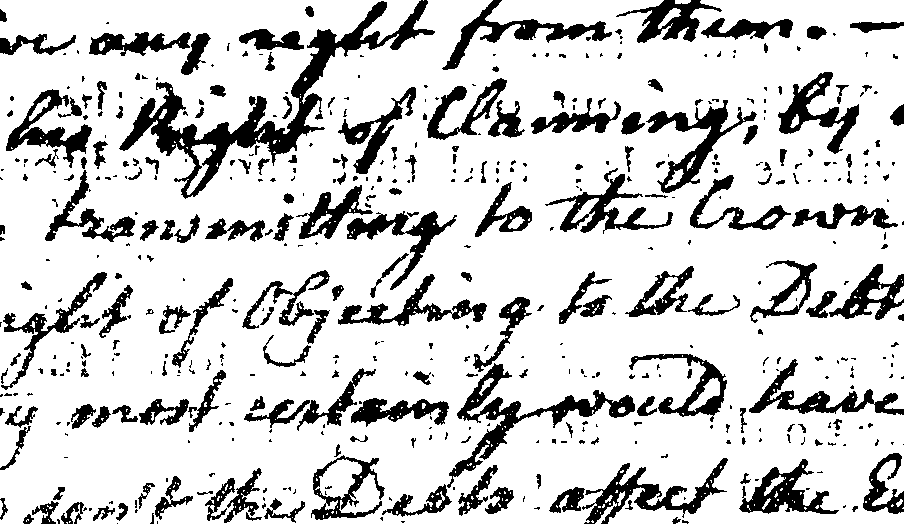 any right from them. —
his Right of Claiming, by
transmitting to the Crown
ight of Objecting to the Debts
y most certainly would have
don't the Debts affect the